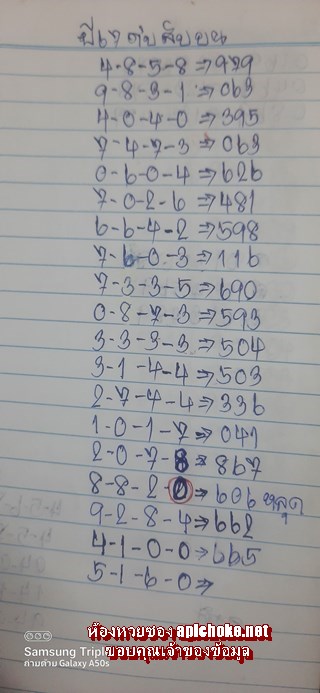 ปี67 ดับสิบบน
4-8-5-8⇒979
9-8-3-1⇒063
4-0-4-0⇒395
7-4-7-3⇒063
0-6-0-4⇒626
7-0-2-6⇒481
6-6-4-2⇒598
7-6-0-3⇒116
7-3-3-5⇒690
0-8-7-3⇒593
3-3-3-3⇒504
3-1-4-4⇒503
2-7-4-4⇒336
1-0-1-7⇒041
2-0-7-8⇒867
8-8-2-0⇒606 หลุด
9-2-8-4⇒662
4-1-0-0⇒665
5-1-6-0⇒
Samsung Triple
ถ่ายด้วย Galaxy A50s
ห้องหวยซอง apichoke.net
ขอบคุณเจ้าของข้อมูล